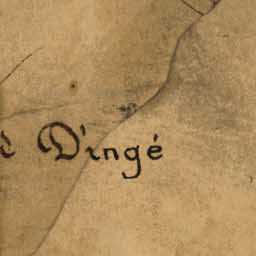 D'ingé